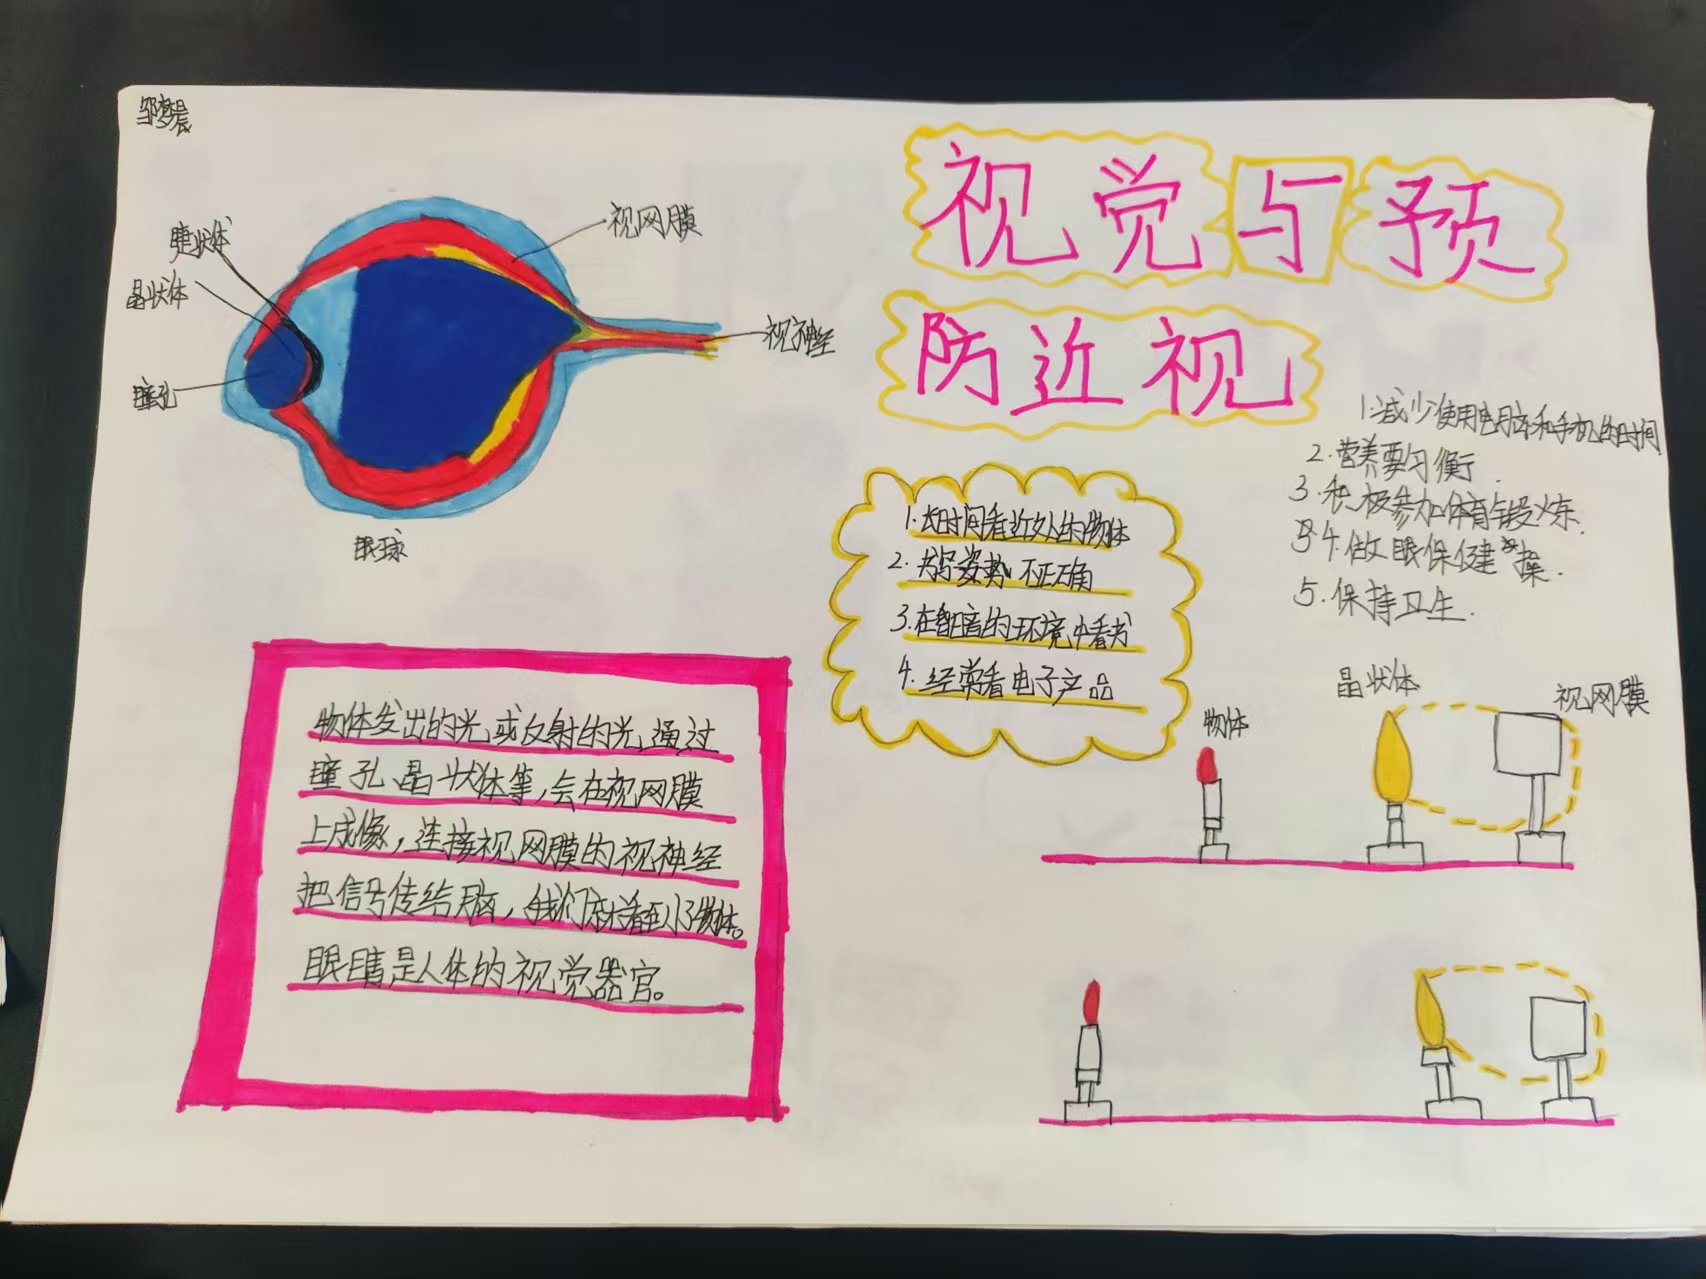 邹梦晨
视觉与预
防近视
睫状体
晶状体
瞳孔
视网膜
视神经
眼球
1.减少使用电脑和手机的时间
2.营养要习衡.
3.积极参加体育锻炼.
4.做眼保健操.
5.保持卫生.
1.长时间看近处的物体
2.书写姿势不正确
3.在昏暗的环境中看书
4.经常看电子产品
物体发出的光或反射的光通过
瞳孔、晶状体等,会在视网膜
上成像,连接视网膜的视神经
把信号传给脑,我们就看到了物体。
眼睛是人体的视觉器官。
物体
晶状体
视网膜